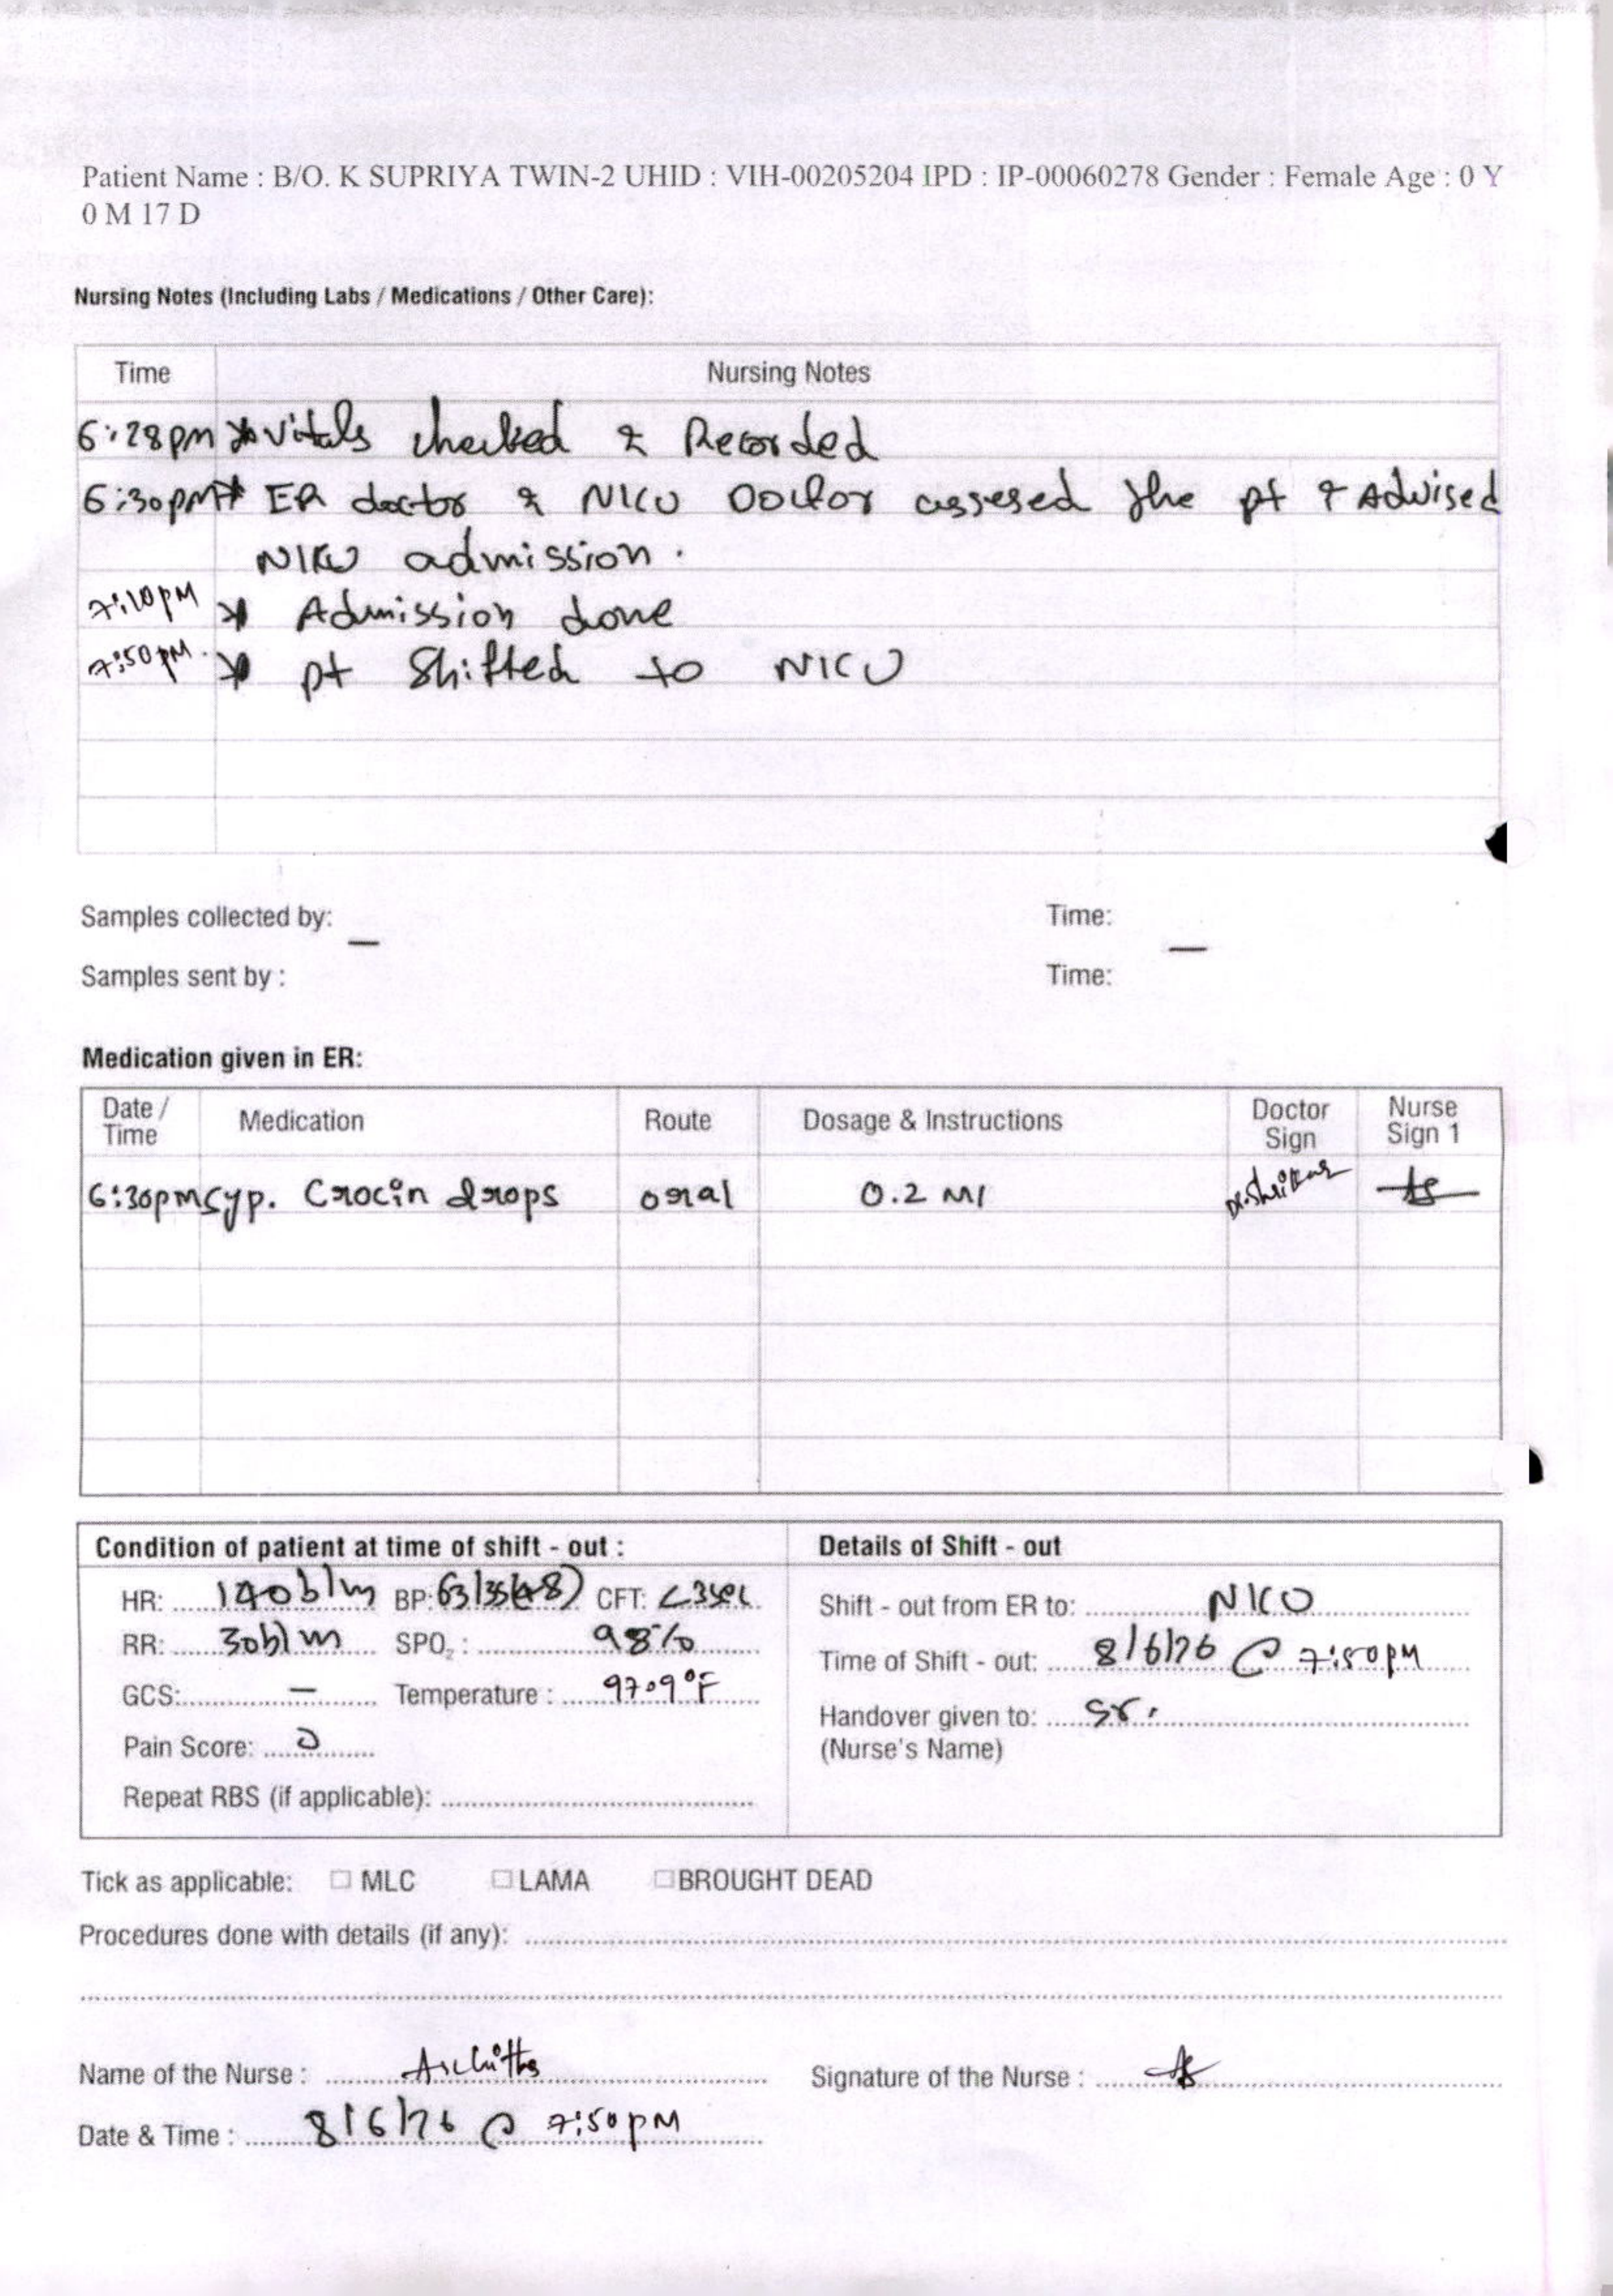 Patient Name : B/O. K SUPRIYA TWIN-2 UHID : VIH-00205204 IPD : IP-00060278 Gender : Female Age : 0 Y
0 M 17 D
Nursing Notes (Including Labs / Medications / Other Care):
Time Nursing Notes
6:28pm * vitals checked & Recorded
6:30pm * ER doctor & NICU Doctor assesed the pt & Advised
NICU admission.
7:10pm * Admission done
7:50pm * pt Shifted to NICU
Samples collected by: — Time: —
Samples sent by : Time:
Medication given in ER:
Date / Time Medication Route Dosage & Instructions Doctor Sign Nurse Sign 1
6:30pm Syp. Crocin drops oral 0.2 Ml Dr. Shrikar
Condition of patient at time of shift - out : Details of Shift - out
HR: 140b/m BP: 63/35(48) CFT: <3sec
Shift - out from ER to: NICU
RR: 30b/m SPO2 : 98%
Time of Shift - out: 8/6/26 @ 7:50pm
GCS: — Temperature : 97.9°F
Handover given to: Sr.
(Nurse's Name)
Pain Score: 0
Repeat RBS (if applicable):
Tick as applicable: MLC LAMA BROUGHT DEAD
Procedures done with details (if any):
Name of the Nurse : Archittha Signature of the Nurse :
Date & Time : 8/6/26 @ 7:50pm